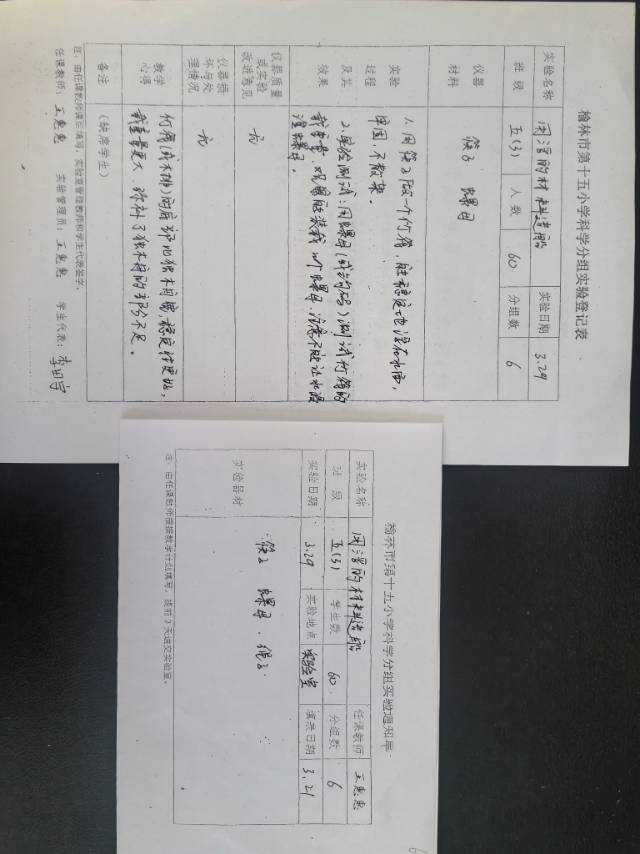 榆林市第十五小学科学分组实验登记表
实验名称 用浮的材料造船 实验日期 3.29
班级 五(3) 人数 60 分组数 6
仪器材料 筷子 螺母
实验过程及其效果
1.用筷子做一个竹筏,能稳定地浮在水面,
牢固,不散架。
2.实验测试:用螺母(或钩码)测试竹筏的
载重量,观察能装载几个螺母,注意不能让水浸
湿螺母。
仪器质量或实验改进意见 无
仪器损坏与处理情况 无
教学心得
竹筏(或木排)的底部比独木舟宽,稳定性更好,
载重量更大,弥补了独木舟的部分不足。
备注 (缺席学生)
注:由任课教师课后填写,实验室管理教师和学生代表签字。
任课教师:王惠惠 实验管理员:王惠惠 学生代表:李田宇
榆林市第十五小学科学分组实验通知单
实验名称 用浮的材料造船 任课教师 王惠惠
班级 五(3) 学生数 60 分组数 6
实验日期 3.29 实验地点 实验室 填表日期 3.21
实验器材 筷子 螺母、绳子
注:由任课教师根据教学计划填写,提前3天递交实验室。